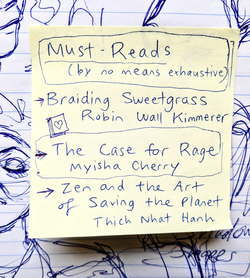 Must-Reads
(by no means exhaustive)
→ Braiding Sweetgrass
Robin Wall Kimmerer
→ The Case for Rage
Myisha Cherry
→ Zen and the Art
of Saving the Planet
Thich Nhat Hanh